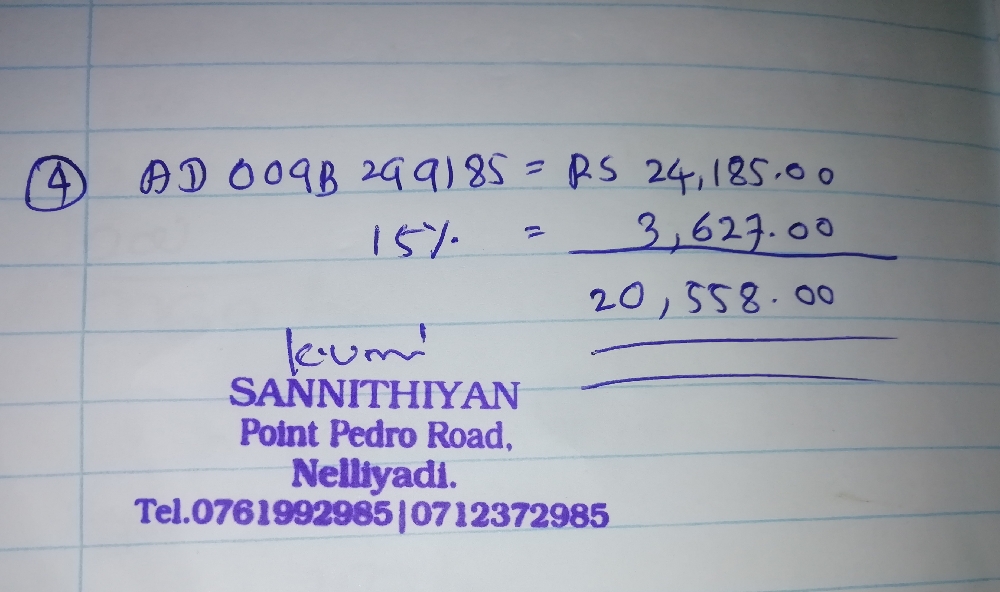 4 AD 009B 299185 = RS 24,185.00
15% = 3,627.00
20,558.00
SANNITHIYAN
Point Pedro Road,
Nelliyadi.
Tel.0761992985|0712372985